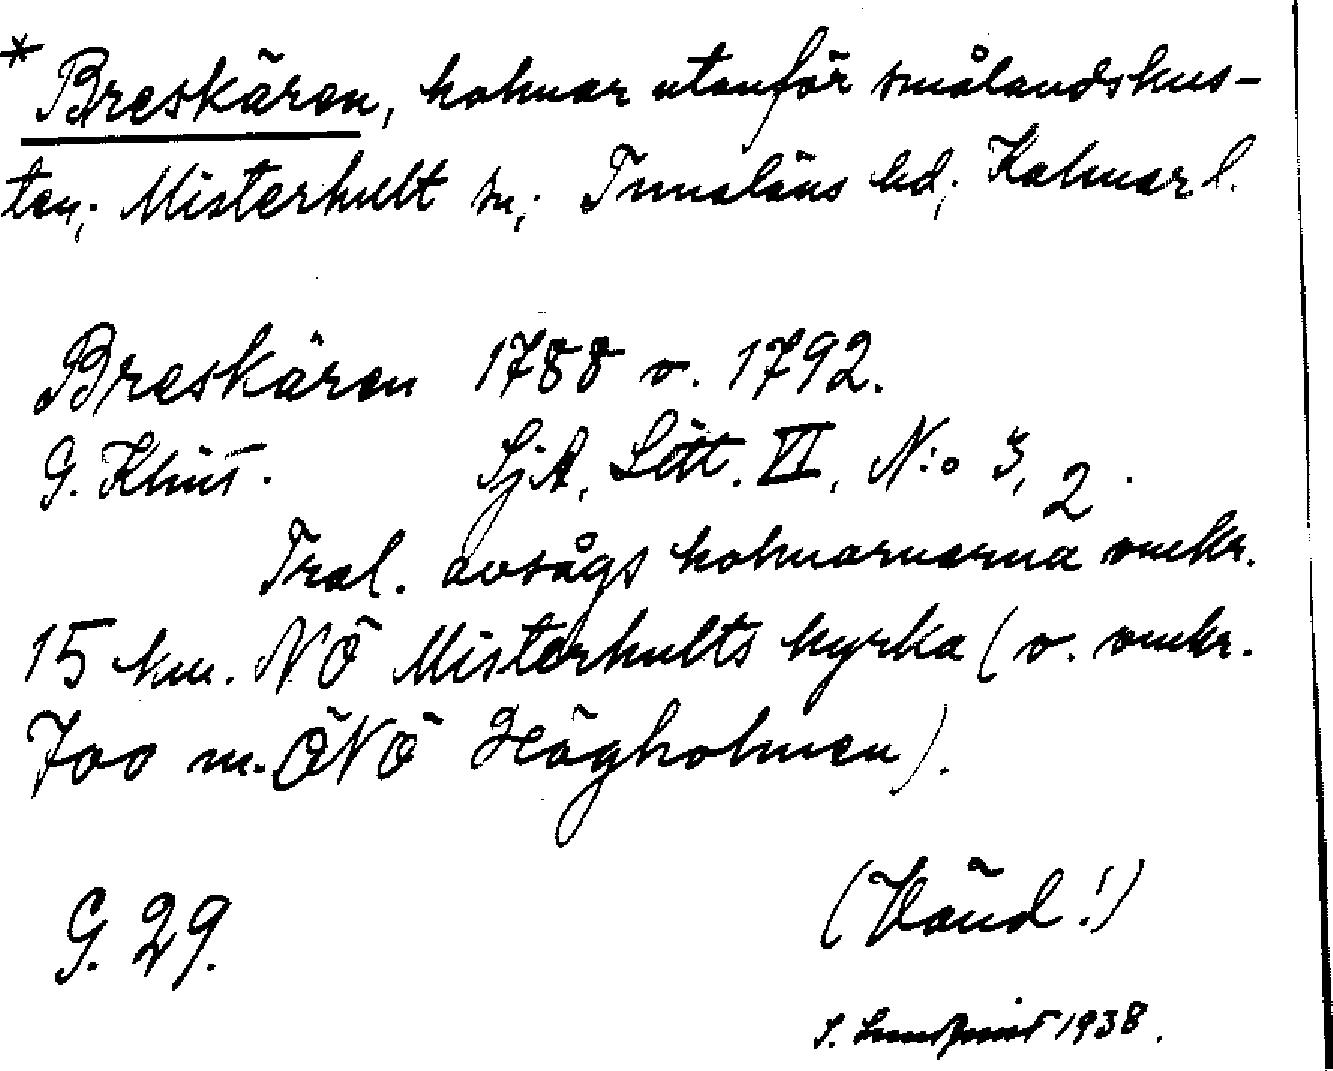 * Breskären, holmar utanför smålandskus-
ten; Misterhult sn; Tunaläns hd; Kalmar l.
Breskären 1788 o. 1792.
G. Klint. SjA, Litt. VI, N:o 3, 2.
Tral. avsågs holmarnarna omkr.
15 km. NÖ Misterhults kyrka (o. omkr.
700 m. ÖNÖ Högholmen).
G. 29. (Vänd!)
S. Lundqvist 1938.